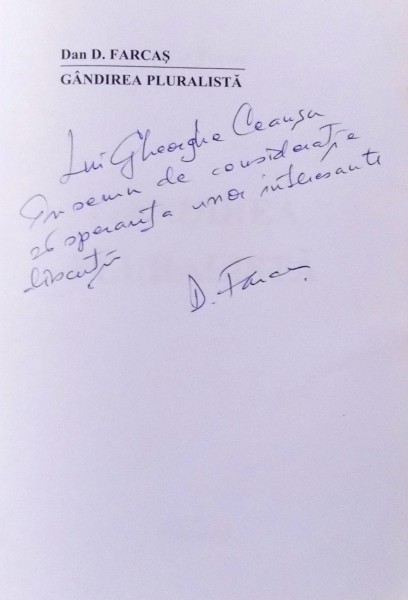 Dan D. FARCAȘ
GÂNDIREA PLURALISTĂ
Lui Gheorghe Ceaușu
În semn de considerație
și speranța unor interesante
discuții
D. Farcaș